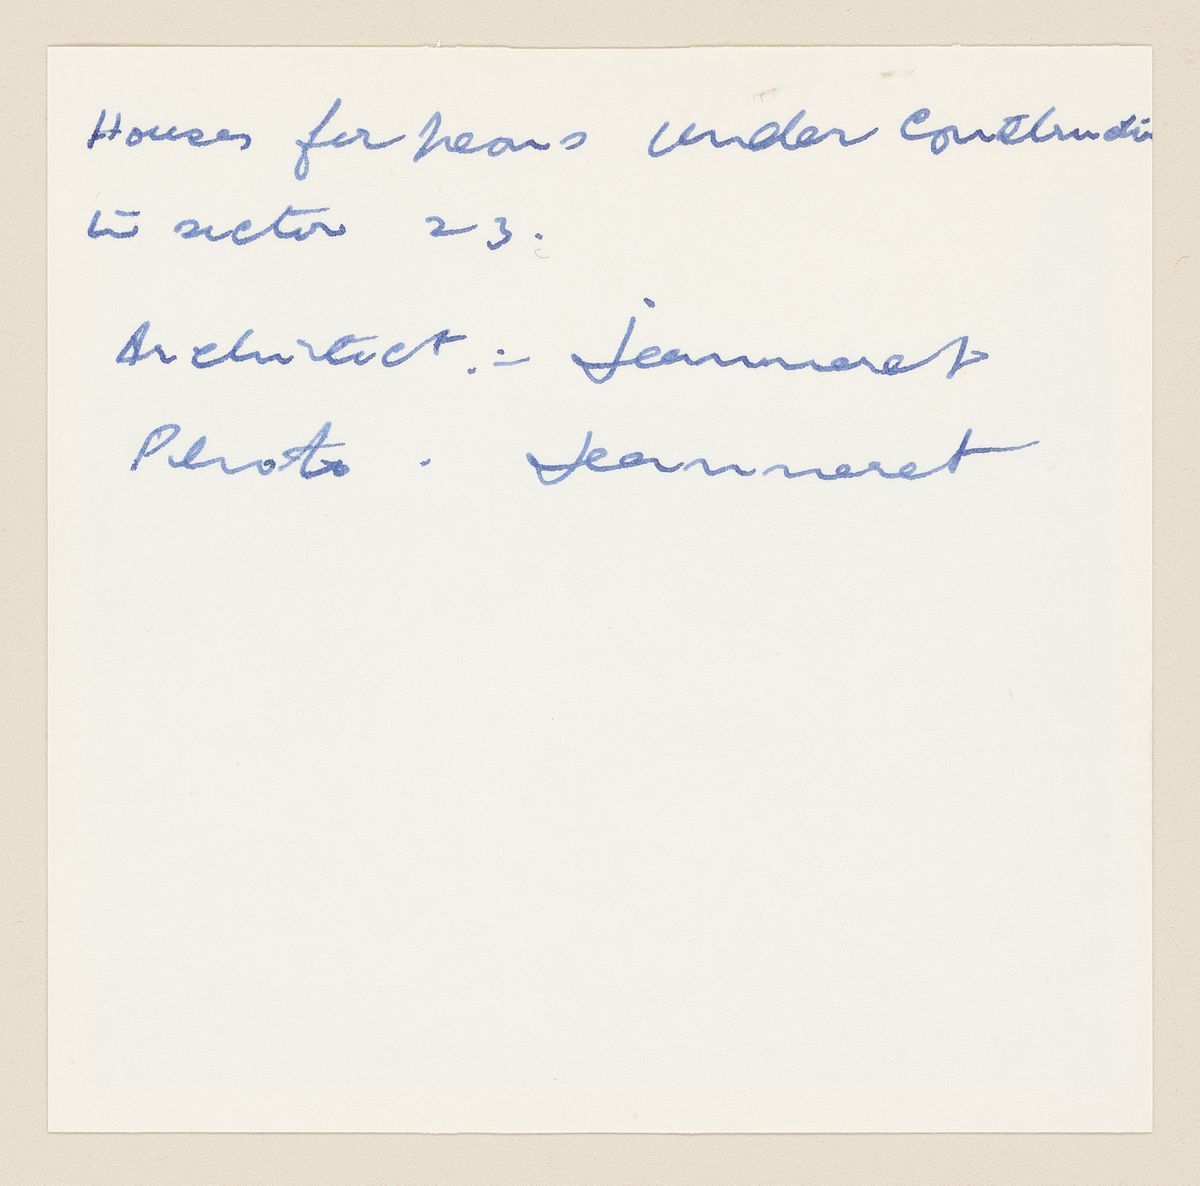 Houses for peons under Constructi
in sector 23.
Architect :- Jeanneret
Photo . Jeanneret